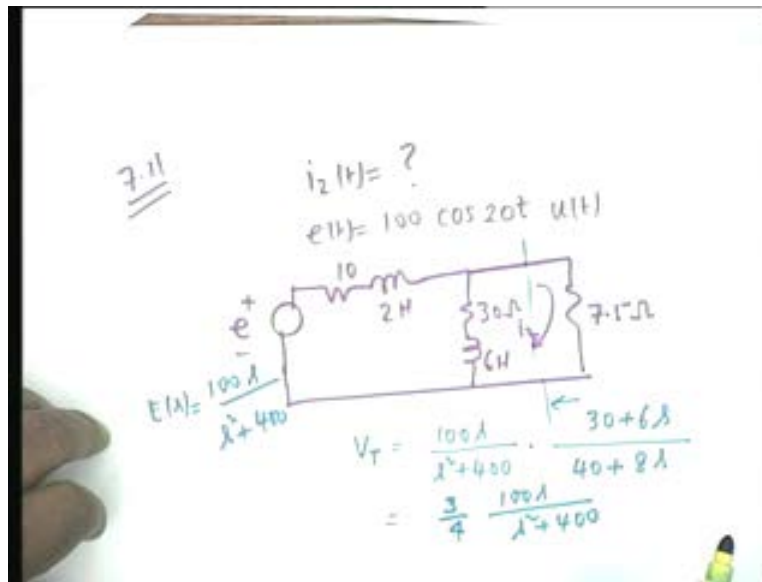 7.11
i₂(t) = ?
e(t) = 100 cos 20t u(t)
10
2H
30Ω
i₂
7.5Ω
6H
+
e
-
E(s) = 100s / s²+400
V_T = 100s / s²+400 · 30+6s / 40+8s
= 3/4 100s / s²+400